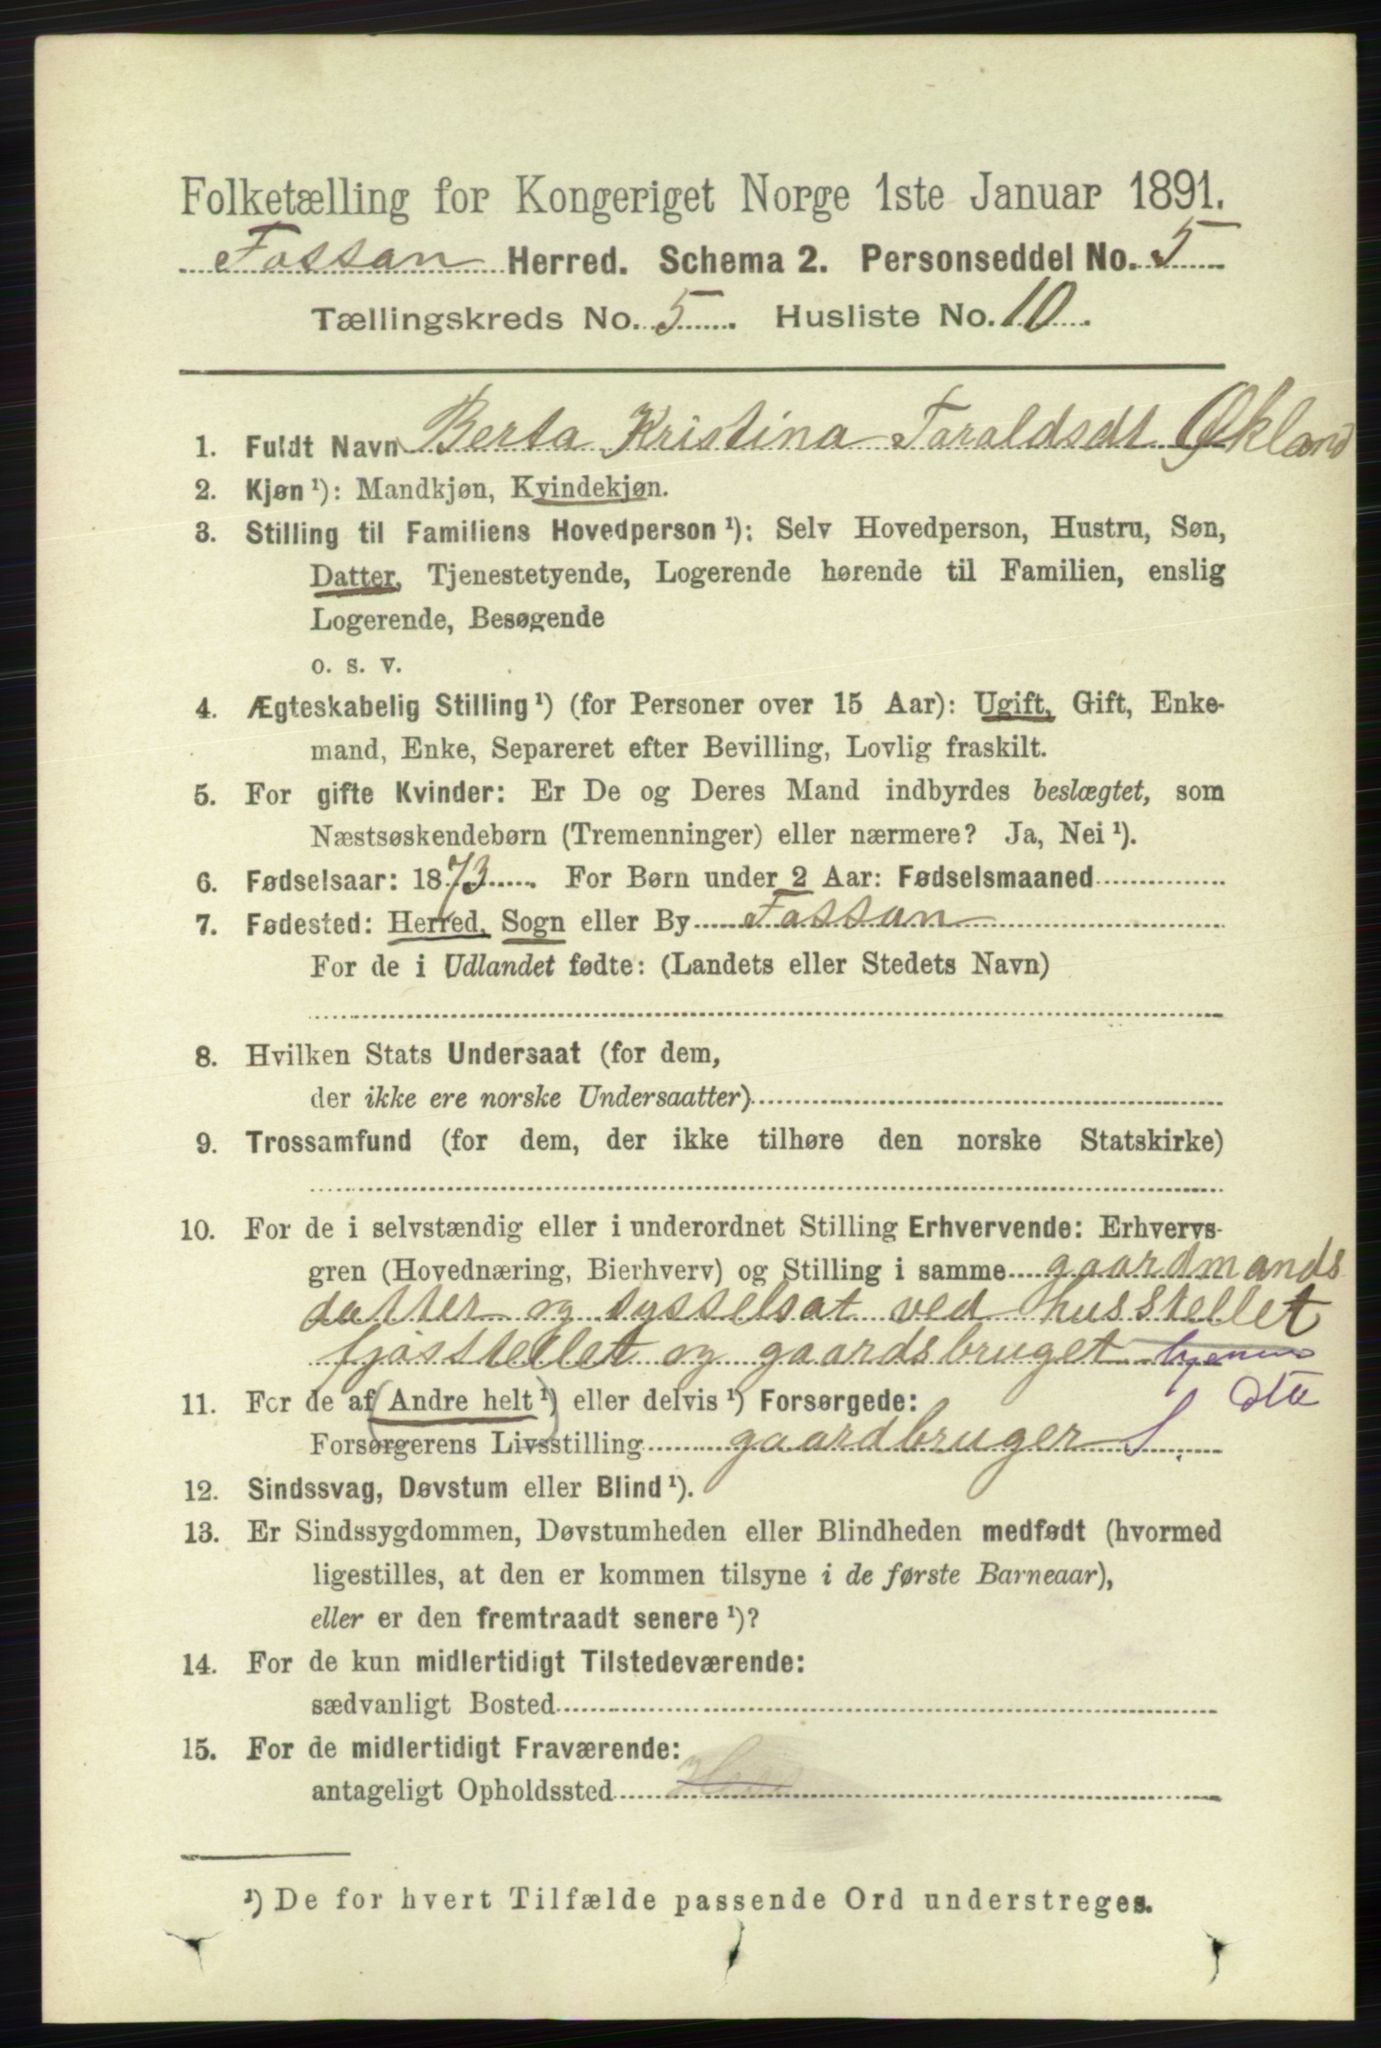 Folketælling for Kongeriget Norge 1ste Januar 1891.
Fossan Herred. Schema 2. Personseddel No. 5
Tællingskreds No. 5. Husliste No. 10.
1. Fuldt Navn Berta Kristina Taraldsdt Økland
2. Kjøn¹): Mandkjøn, Kvindekjøn.
3. Stilling til Familiens Hovedperson¹): Selv Hovedperson, Hustru, Søn,
Datter, Tjenestetyende, Logerende hørende til Familien, enslig
Logerende, Besøgende
o. s. v.
4. Ægteskabelig Stilling¹) (for Personer over 15 Aar): Ugift, Gift, Enke-
mand, Enke, Separeret efter Bevilling, Lovlig fraskilt.
5. For gifte Kvinder: Er De og Deres Mand indbyrdes beslægtet, som
Næstsøskendebørn (Tremenninger) eller nærmere? Ja, Nei¹).
6. Fødselsaar: 1873. For Børn under 2 Aar: Fødselsmaaned
7. Fødested: Herred, Sogn eller By Fossan
For de i Udlandet fødte: (Landets eller Stedets Navn)
8. Hvilken Stats Undersaat (for dem,
der ikke ere norske Undersaatter)
9. Trossamfund (for dem, der ikke tilhøre den norske Statskirke)
10. For de i selvstændig eller i underordnet Stilling Erhvervende: Erhvervs-
gren (Hovednæring, Bierhverv) og Stilling i samme gaardmands
datter og sysselsat ved husstellet
fjøsstellet og gaardsbruget
11. For de af (Andre helt¹) eller delvis¹) Forsørgede:
Forsørgerens Livsstilling gaardbruger S.
12. Sindssvag, Døvstum eller Blind¹).
13. Er Sindssygdommen, Døvstumheden eller Blindheden medfødt (hvormed
ligestilles, at den er kommen tilsyne i de første Barneaar),
eller er den fremtraadt senere¹)?
14. For de kun midlertidigt Tilstedeværende:
sædvanligt Bosted
15. For de midlertidigt Fraværende:
antageligt Opholdssted
¹) De for hvert Tilfælde passende Ord understreges.